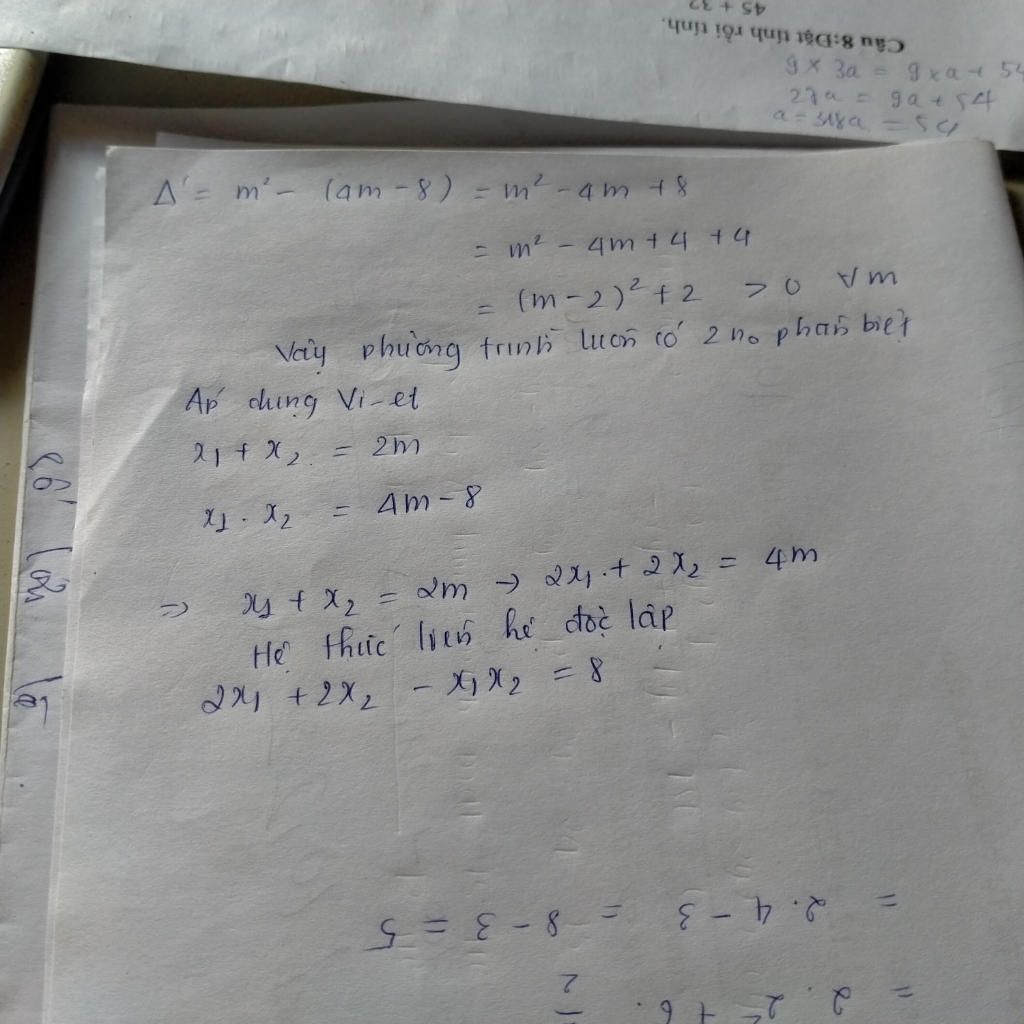 45 + 32
Câu 8: Đặt tính rồi tính.
9 × 3a = 9 × a + 54
27a = 9a + 54
18a = 54
Δ' = m² - (4m - 8) = m² - 4m + 8
= m² - 4m + 4 + 4
= (m - 2)² + 2 > 0 ∀m
Vậy phương trình luôn có 2 no phân biệt
Áp dụng Vi-et
x₁ + x₂ = 2m
x₁ . x₂ = 4m - 8
=> x₁ + x₂ = 2m → 2x₁ + 2x₂ = 4m
Hệ thức liên hệ độc lập
2x₁ + 2x₂ - x₁x₂ = 8
= 2 . 4 - 3 = 8 - 3 = 5